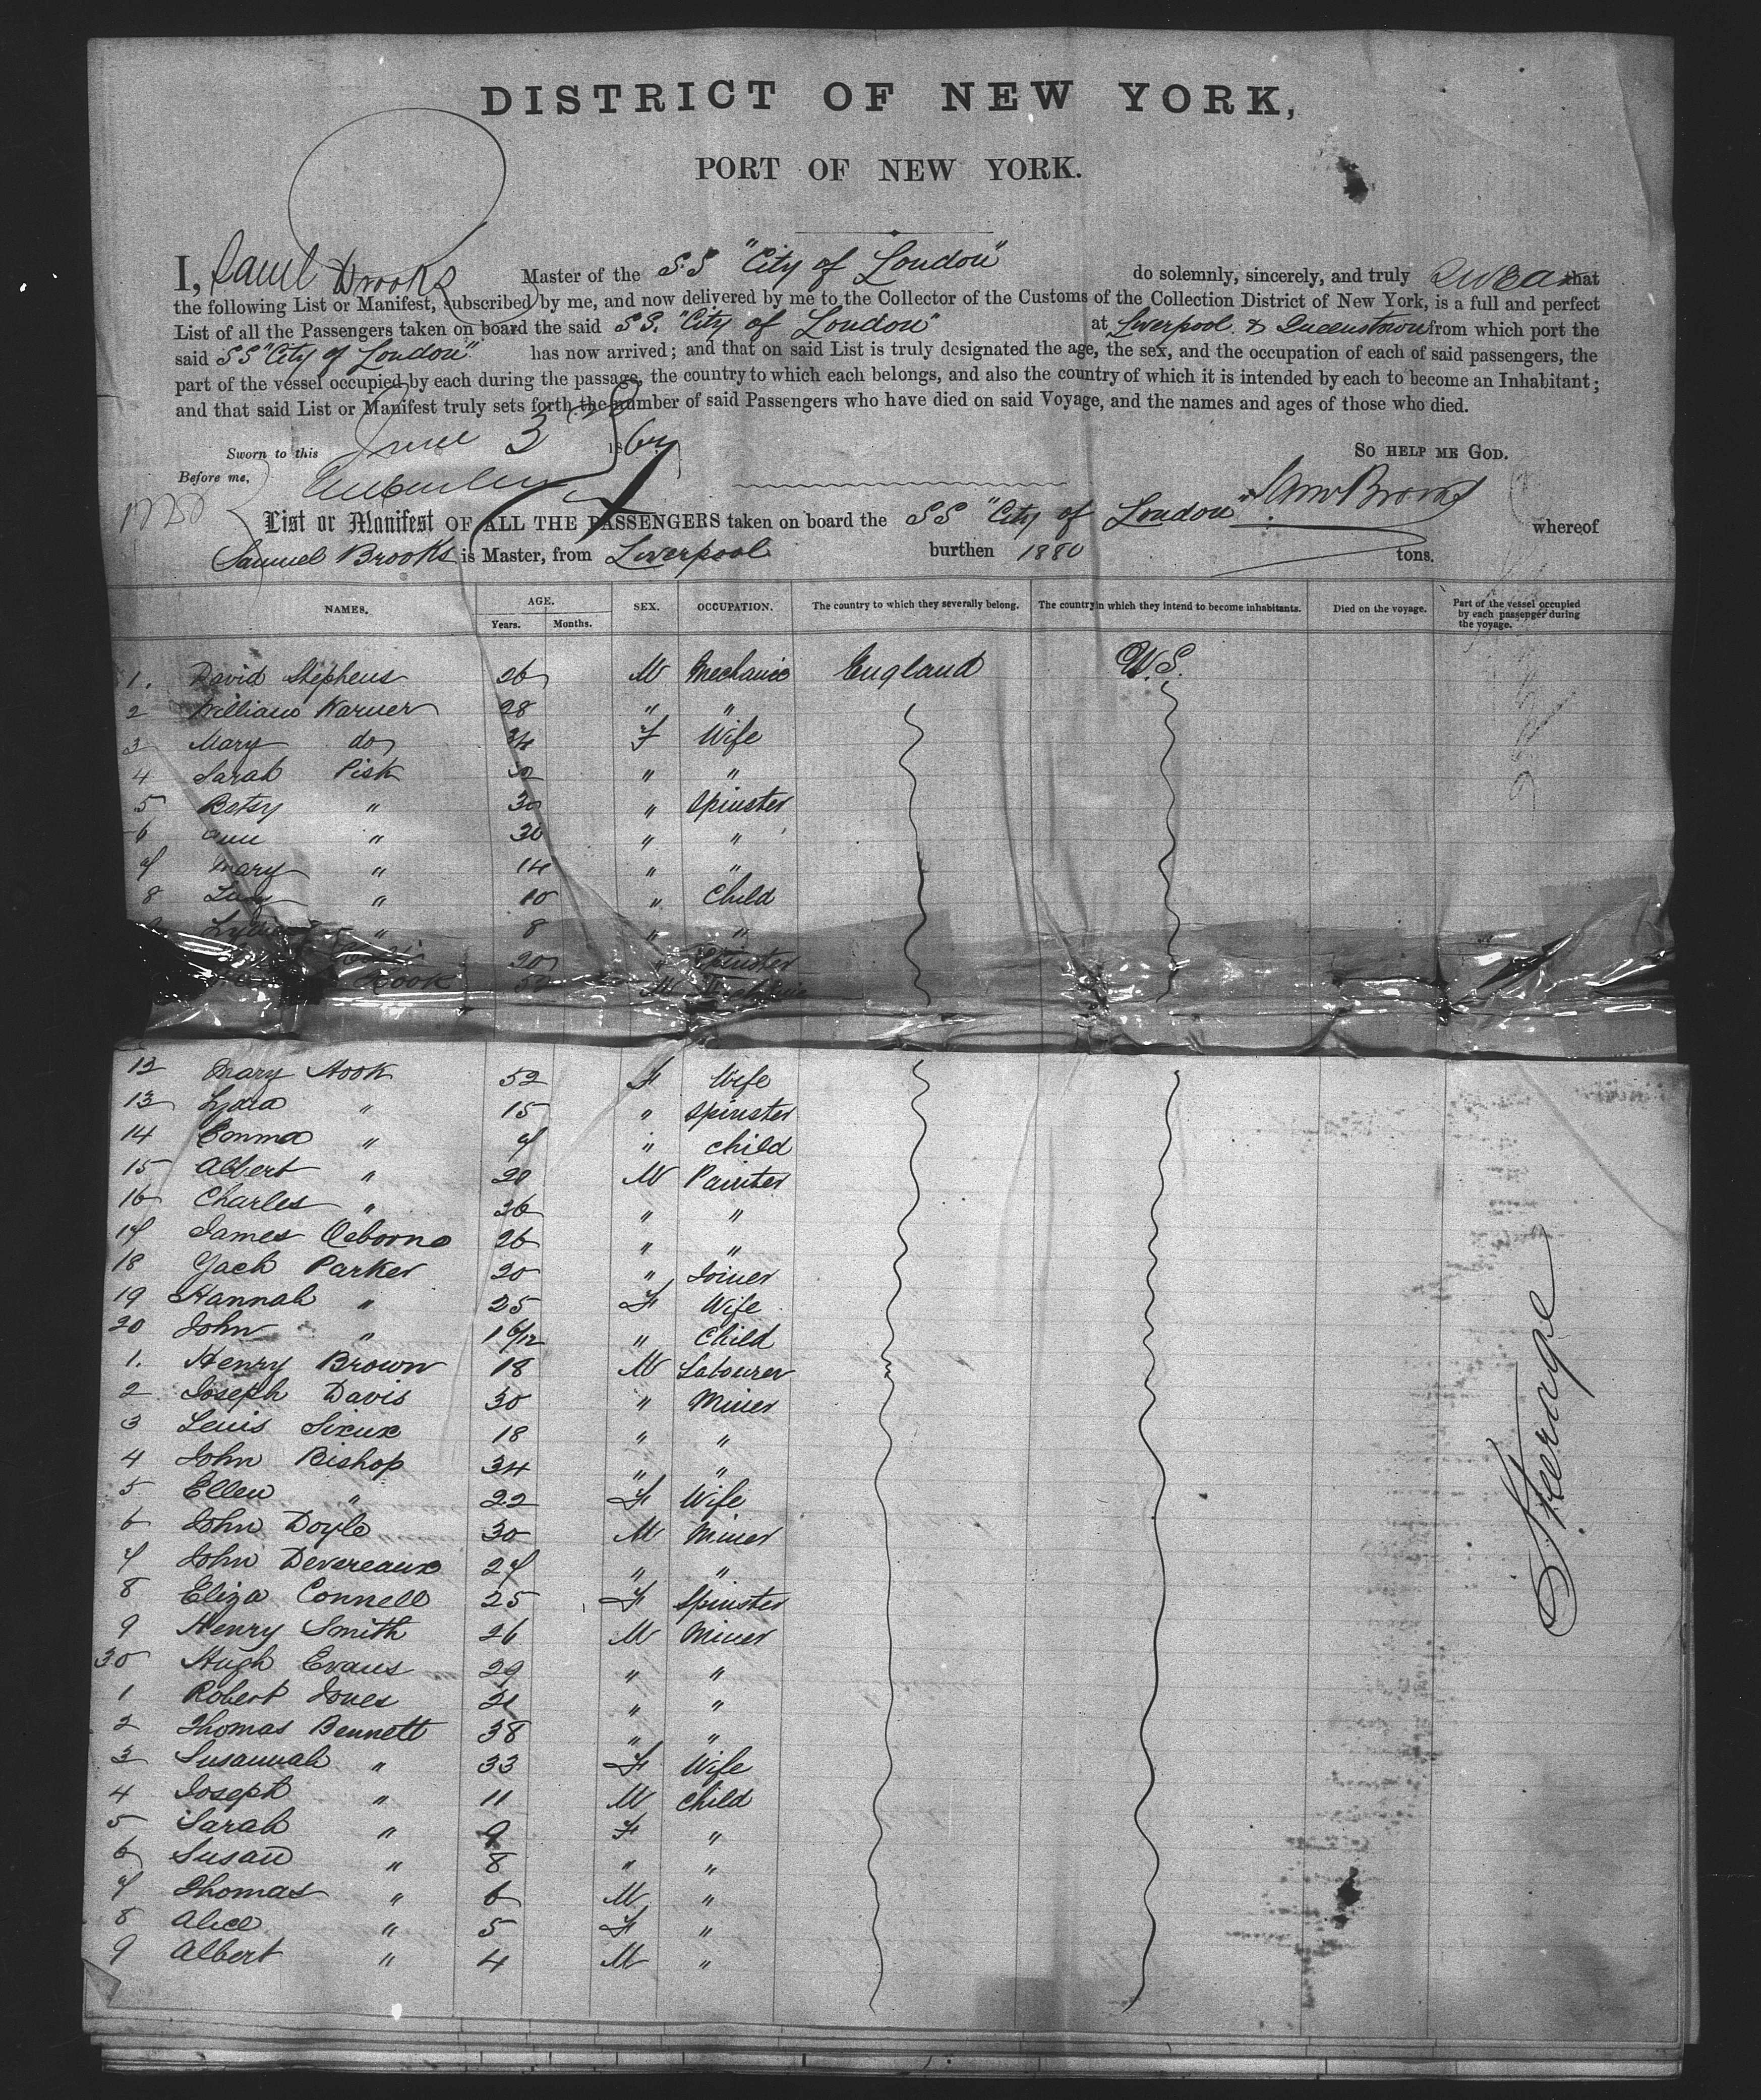 DISTRICT OF NEW YORK,
PORT OF NEW YORK.
I, Saml Brooks Master of the S.S "City of London" do solemnly, sincerely, and truly swear that
the following List or Manifest, subscribed by me, and now delivered by me to the Collector of the Customs of the Collection District of New York, is a full and perfect
List of all the Passengers taken on board the said S.S. "City of London" at Liverpool & Queenstown from which port the
said SS "City of London" has now arrived; and that on said List is truly designated the age, the sex, and the occupation of each of said passengers, the
part of the vessel occupied by each during the passage, the country to which each belongs, and also the country of which it is intended by each to become an Inhabitant;
and that said List or Manifest truly sets forth the number of said Passengers who have died on said Voyage, and the names and ages of those who died.
Sworn to this June 3 1867 SO HELP ME GOD.
Before me, Saml Brooks
List or Manifest OF ALL THE PASSENGERS taken on board the SS "City of London" whereof
Samuel Brooks is Master, from Liverpool burthen 1880 tons.
NAMES. AGE. SEX. OCCUPATION. The country to which they severally belong. The country in which they intend to become inhabitants. Died on the voyage. Part of the vessel occupied by each passenger during the voyage.
Years. Months.
1. David Stephens 26 M Mechanic England U.S.
2 William Warner 28 " "
3 Mary do 34 F Wife
4 Sarah Pisk " "
5 Betsy " 30 " Spinster
6 Ann " 30 " "
7 Mary " 14 " "
8 Lucy " 10 " Child
" 8 " "
20 " Spinster
Hook M
12 Mary Hook 52 F Wife
13 Lydia " 15 " Spinster
14 Emma " 7 " Child
15 Albert " 20 M Painter
16 Charles " 26 " "
17 James Osborne 26 " "
18 Zach Parker 20 " Joiner
19 Hannah " 25 F Wife
20 John " 1 6/12 " Child
1. Henry Brown 18 M Labourer
2 Joseph Davis 30 " Miner
3 Lewis 18 " "
4 John Bishop 34 " "
5 Ellen " 22 F Wife
6 John Doyle 30 M Miner
7 John Devereaux 27 " "
8 Eliza Connell 25 F Spinster
9 Henry Smith 26 M Miner
30 Hugh Evans 29 " "
1 Robert Jones 21 " "
2 Thomas Bennett 38 " "
3 Susannah " 33 F Wife
4 Joseph " 11 M Child
5 Sarah " 9 F "
6 Susan " 8 " "
7 Thomas " 6 M "
8 Alice " 5 F "
9 Albert " 4 M "
Steerage